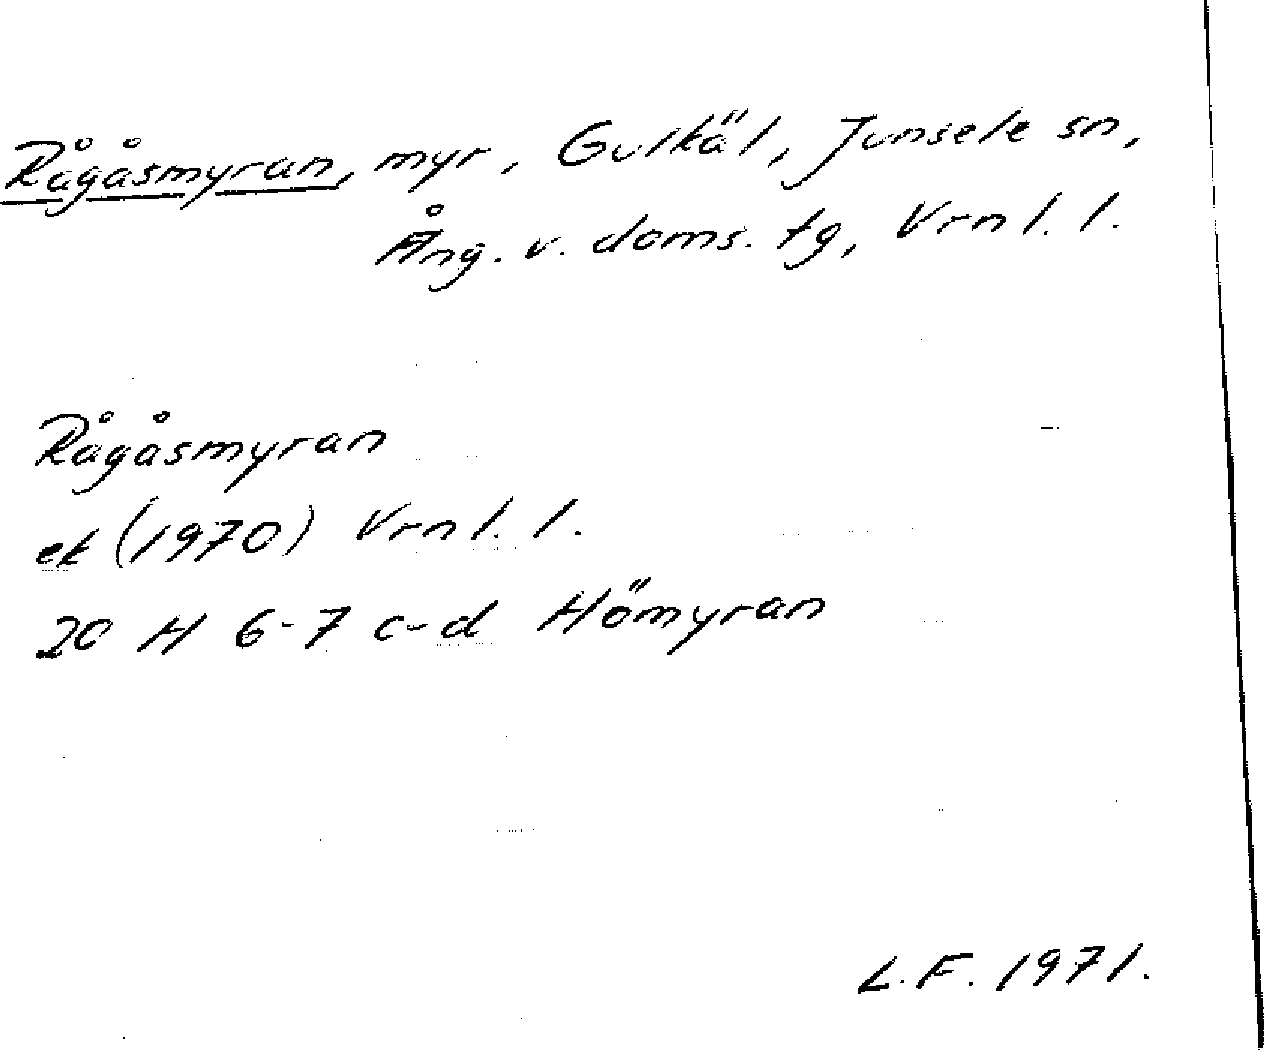 Rågåsmyran, myr, Gulkäl, Junsele sn,
Ång. v. doms. tg, Vrnl. l.
Rågåsmyran
ek (1970) Vrnl. l.
20 H 6-7 c-d Hömyran
L.F. 1971.